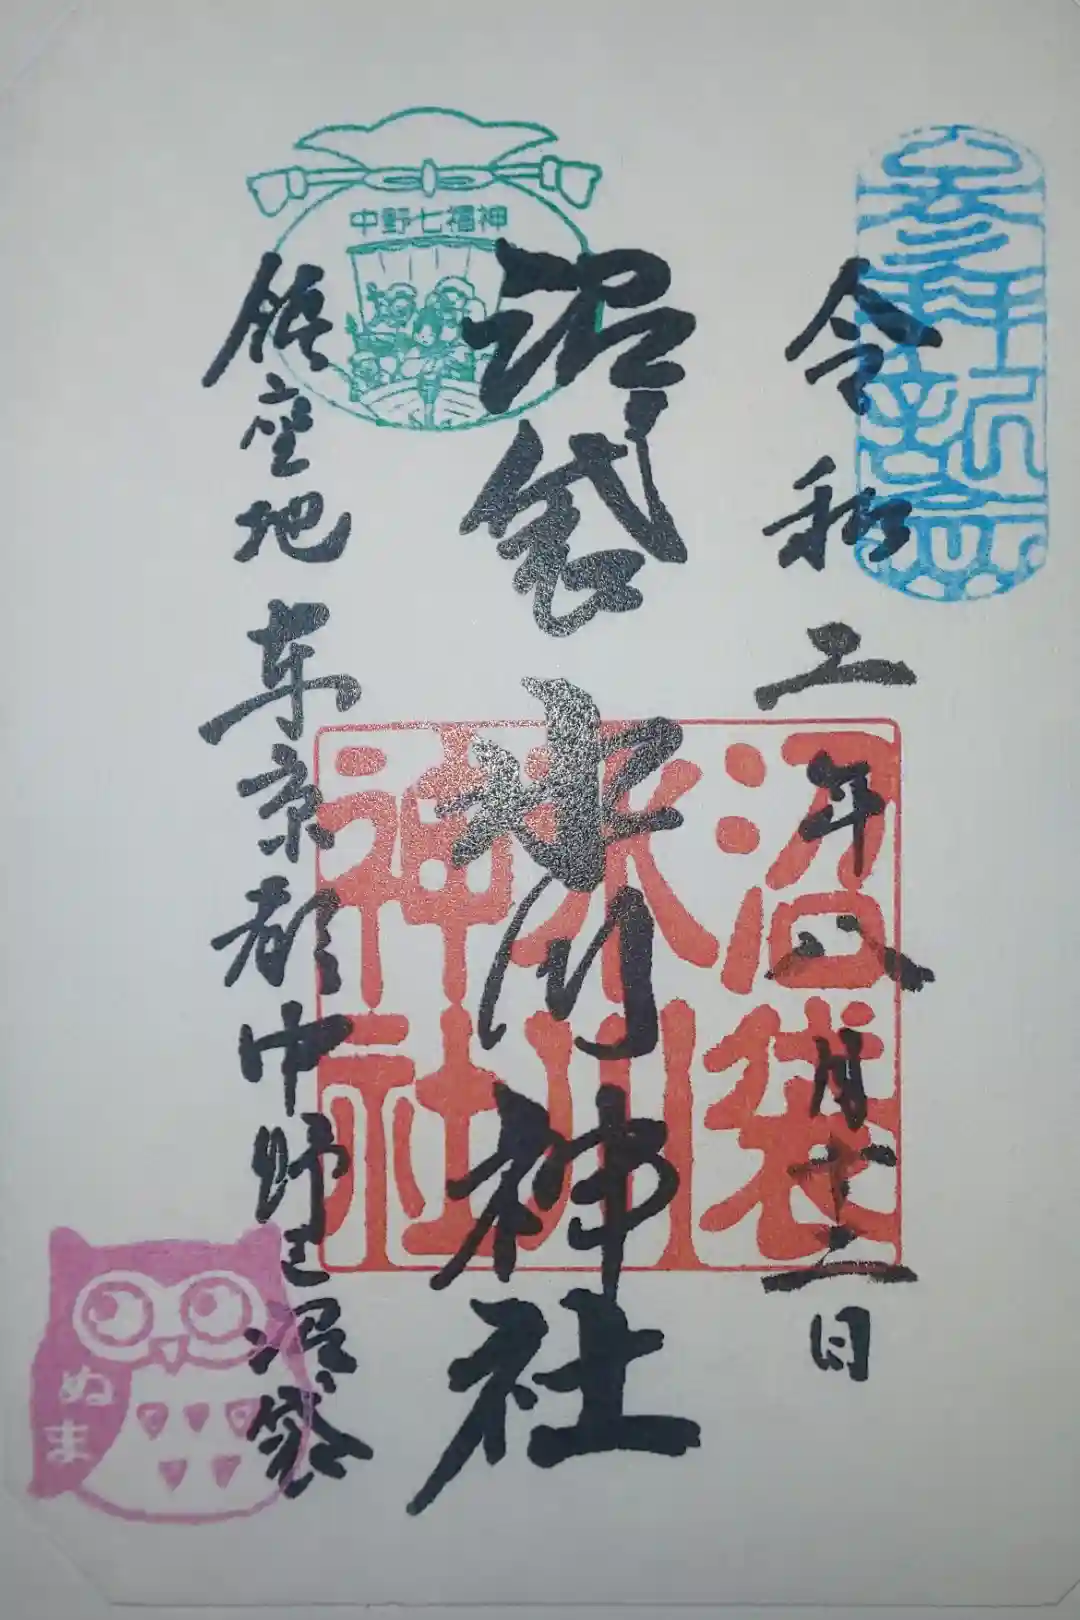 令和二年八月十二日
中野七福神
沼袋氷川神社
沼袋
氷川
神社
鎮座地 東京都中野区沼袋
ぬま